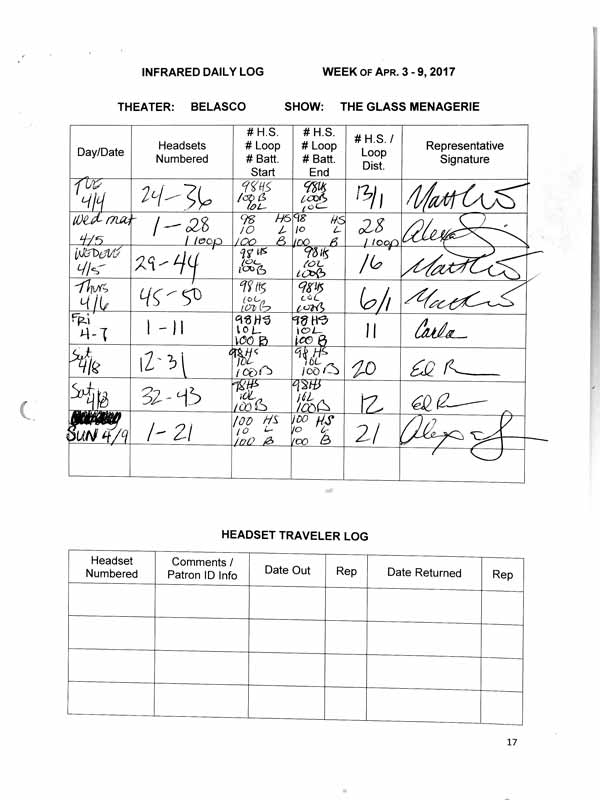 INFRARED DAILY LOG WEEK OF APR. 3 - 9, 2017
THEATER: BELASCO SHOW: THE GLASS MENAGERIE
Day/Date Headsets Numbered # H.S. # Loop # Batt. Start # H.S. # Loop # Batt. End # H.S. / Loop Dist. Representative Signature
TUE 4/4 24-36 98HS 100B 10L 98HS 100B 10L 13/1
Wed mat 4/5 1-28 1 loop 98 HS 10 L 100 B 98 HS 10 L 100 B 28 1 loop
4/5 29-44 98 HS 10L 100B 98HS 10L 100B 16
Thurs 4/6 45-50 98HS 10L 100B 98HS 10L 100B 6/1
Fri 4-7 1-11 98HS 10L 100B 98HS 10L 100B 11 Carla
Sat 4/8 12-31 98HS 10L 100B 98HS 10L 100B 20 Ed
Sat 4/8 32-43 98HS 10L 100B 98HS 10L 100B 12 Ed
SUN 4/9 1-21 100 HS 10 L 100 B 100 HS 10 L 100 B 21
HEADSET TRAVELER LOG
Headset Numbered Comments / Patron ID Info Date Out Rep Date Returned Rep
17